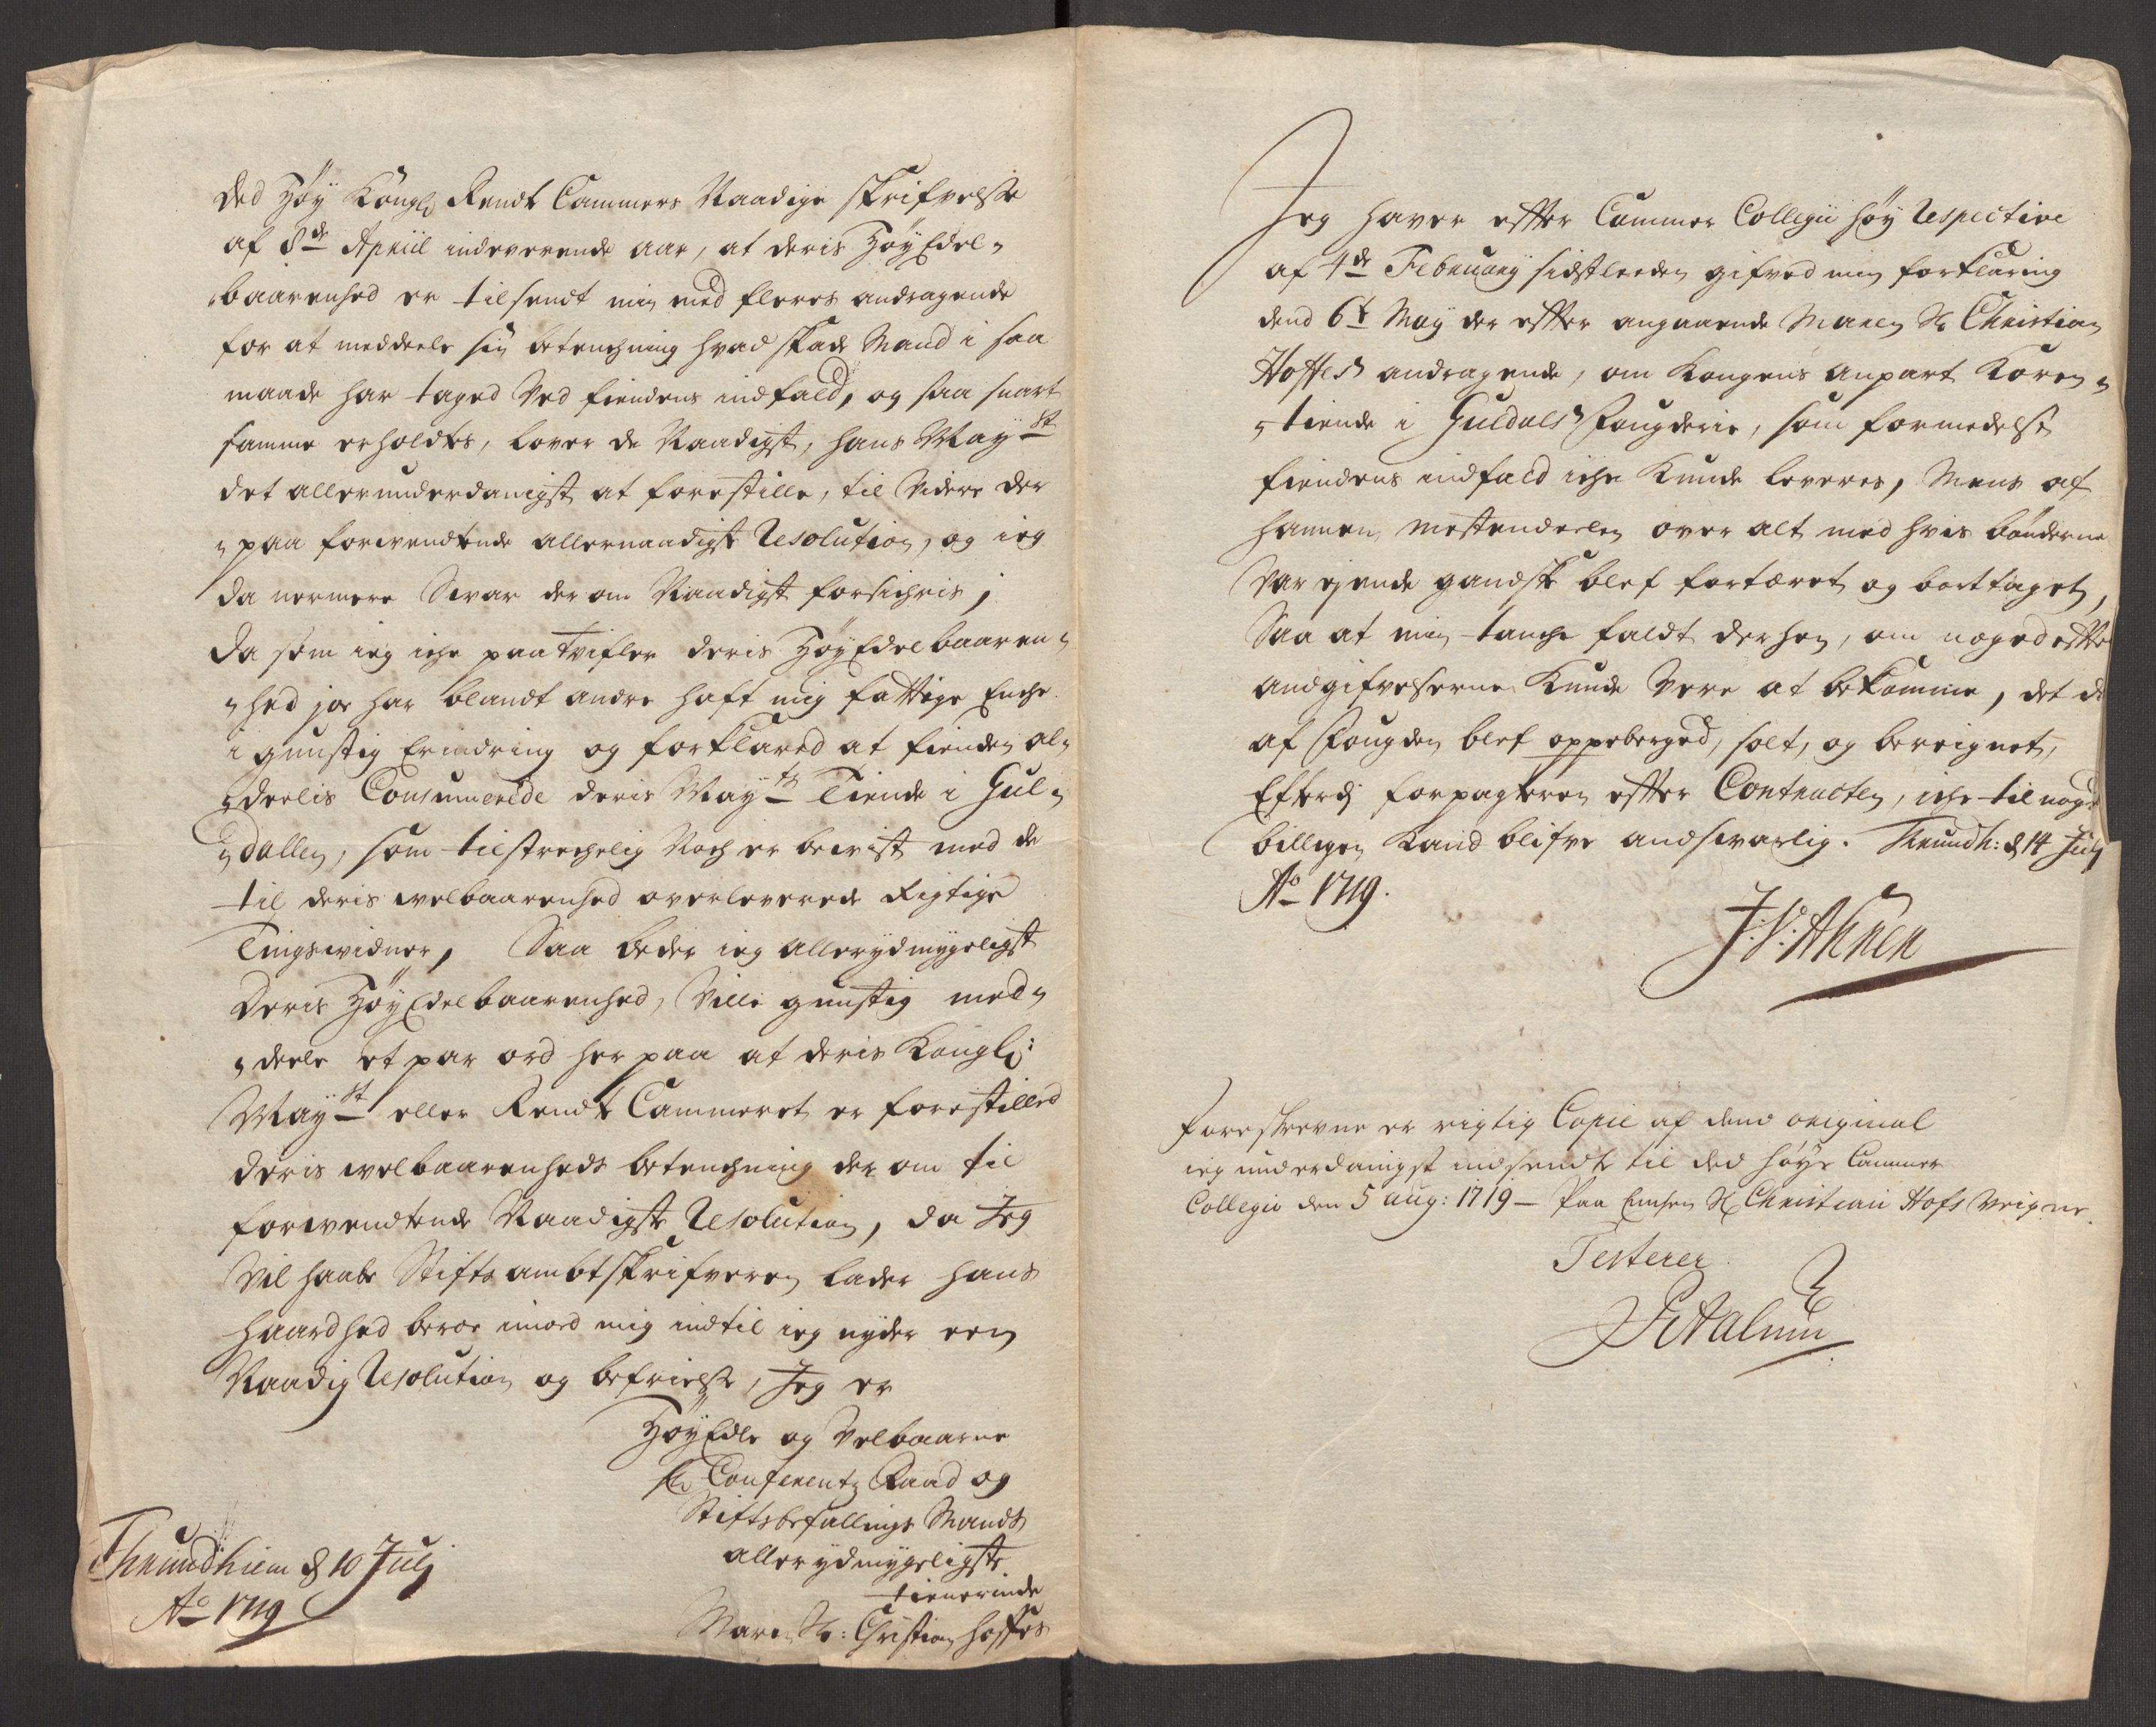 Ded Høy Kongl: Rendt Cammers Naadige skrifvelse
af 8de Apriil indeverende aar, at deris HøyEdel-
baarenhed er tilsendt min med fleres andragende
for at meddeele sin betenchning hvad skade Mand i saa
maade har taged Ved fiendens indfald, og saa snart
samme erholdtes, lover de Naadigst, hans Mayst
det allerunderdanigst at forestille, til Videre der
paa forwendtende allernaadigst Resolution, og ieg
da nermere Svar der om Naadigst forsichris,
Da som ieg iche paatvifler deris HøyEdelbaaren-
hed jo har blandt andre haft mig fattige Enche
i gunstig Erindring og forklared at fienden al-
deelis Consumerede deris Mayts Tiende i Gul-
dallen, som tilstrechelig Noch er bewist med de
til deris welbaarenhed overleverede Rigtige
Tingswidner, Saa beder ieg allerydmygeligst
Deris HøyEdelbaarenhed, Ville gunstig med-
deele et par ord her paa at deris Kongl:
Mayst eller Rendt Cammeret er forestilled
deris welbaarenheds betenchning der om til
forwendtende Naadigste Resolution, da Jeg
Vil haabe Stiftsambtskrifveren lader hans
haardhed beroe imod mig indtil ieg nyder een
Naadig Resolution og befrielse, Jeg er
HøyEdle og Velbaarne
Hr Conferentz Raad og
Stiftsbefallings Mands
allerydmygeligste
tienerinde
Maren Sl: Christian Hoffes
Thrundhiem d 10 Julj
Ao 1719
Jeg haver efter Cammer Collegii høy Respective
af 4de February sidstleeden gifved min forklaring
dend 6t May der efter angaaende Maren Sl Christian
Hoffes andragende, om Kongens anpart Koren-
tiende i Guldals Fougderie, som formedelst
fiendens indfald iche Kunde leveres, Mens af
hannem mestendeelen over alt med hvis bønderne
Var ejende gandske blef fortæret og borttaget,
Saa at min tanche faldt derhen, om noged efter
andgifvelserne Kunde Vere at bekomme, det da
af Fougden blef oppeberged, solt, og bereignet,
Efterdj forpagteren efter Contracten, iche til noged
billigen Kand blifve andsvarlig. Trundh: d 14 July
Ao 1719.
J: V: Ahnen
Foreskrevne er rigtig Copie af dend original
ieg underdanigst indsendte til ded høye Cammer
Collegio den 5 aug: 1719 - Paa Enchen Sl Christian Hofs Veigne.
Testerer